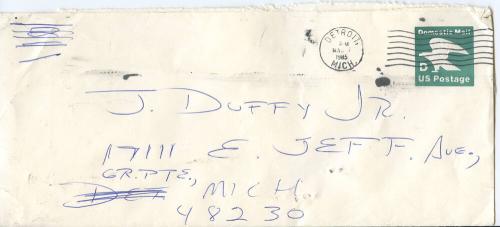 DETROIT
1985
MICH.
Domestic Mail
D
US Postage
J. DUFFY JR.
17111 E. JEFF. AVE.,
GR. PTE.,
MICH
48230